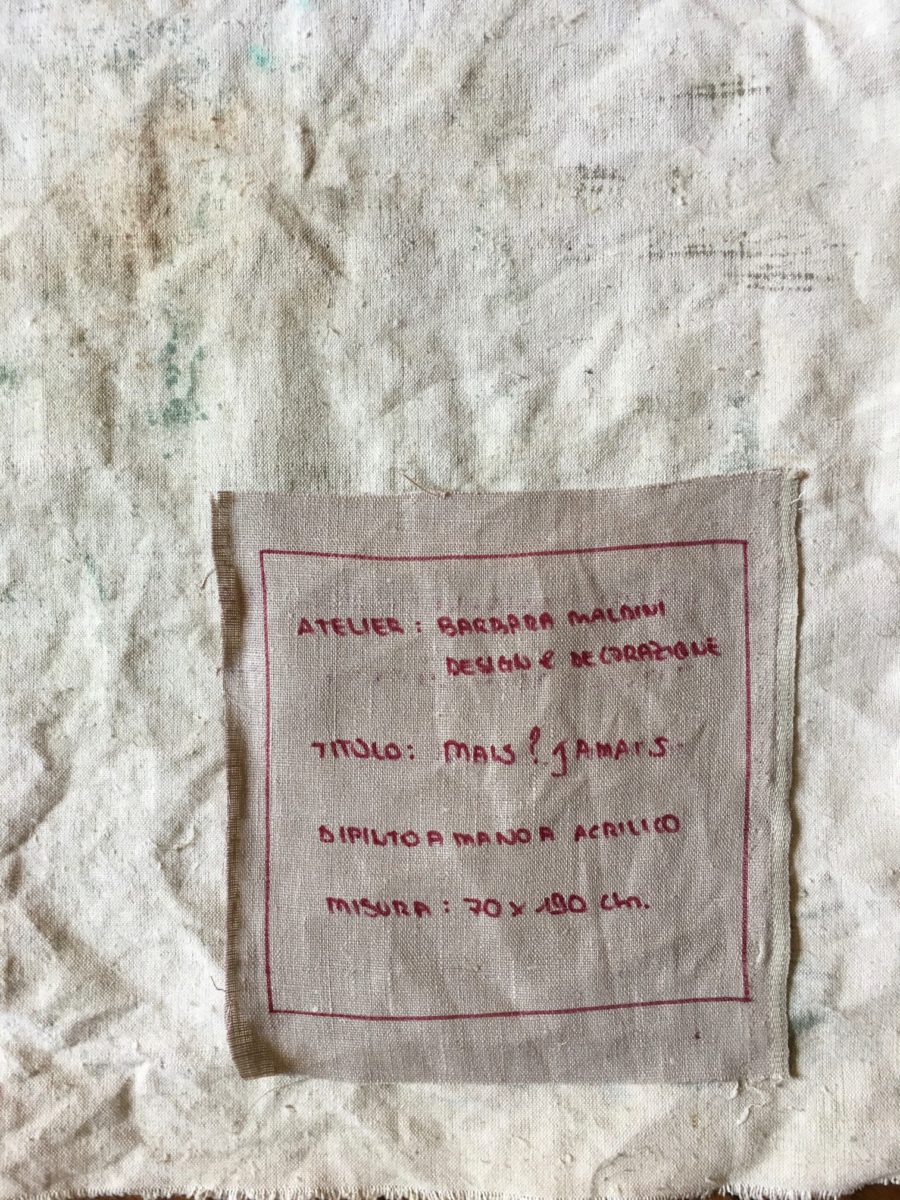 ATELIER: BARBARA MALDINI
DESIGN e DECORAZIONE
TITOLO: MAIS! JAMAIS.
DIPINTO A MANO A ACRILICO
MISURA: 70 x 190 cm.